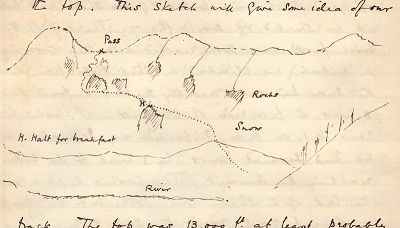 the top. This sketch will give some idea of our
Pass
Rocks
H.
Snow
H. Halt for breakfast
River
track. The top was 13,000 ft. at least probably